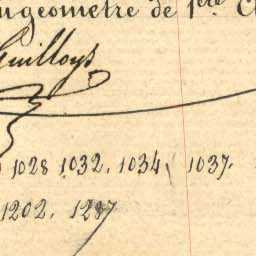 géomètre de 1ère
Guilloys
1028 1032, 1034, 1037.
1202, 1287